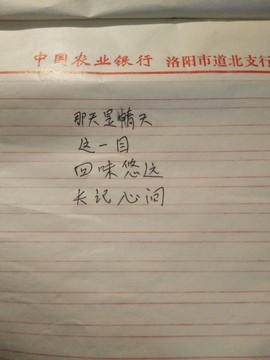 中国农业银行 洛阳市道北支行
那天是晴天
这一目
回味悠远
长记心间